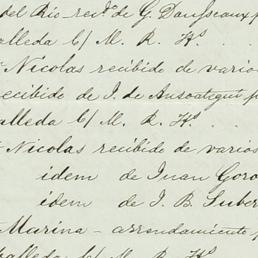 del Rio recdo. de G. Daufseaux p
alleda c/ M. R. Hs.
Nicolas recibido de vario
recibido de J. de Ansoategui p
alleda c/ M. R. Hs.
Nicolas recibido de varios
idem de Juan Goro
idem de J. B. Suber
Marina - arrendamiento p
alleda c/ M. R. Hs